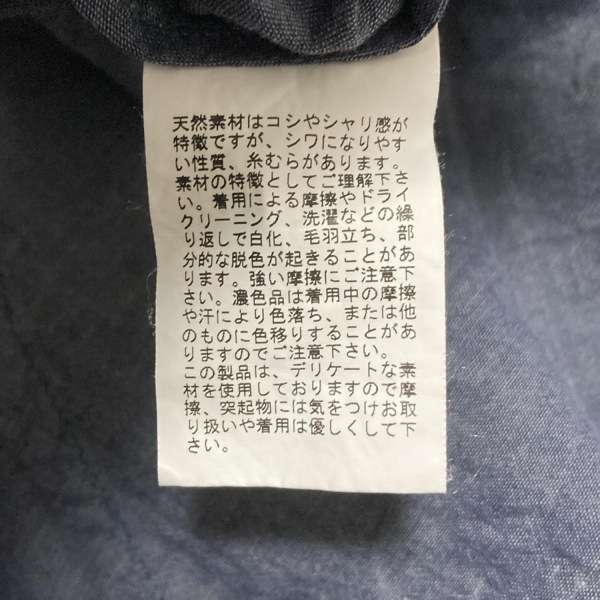 天然素材はコシやシャリ感が
特徴ですが、シワになりやす
い性質、糸むらがあります。
素材の特徴としてご理解下さ
い。着用による摩擦やドライ
クリーニング、洗濯などの繰
り返しで白化、毛羽立ち、部
分的な脱色が起きることがあ
ります。強い摩擦にご注意下
さい。濃色品は着用中の摩擦
や汗により色落ち、または他
のものに色移りすることがあ
りますのでご注意下さい。
この製品は、デリケートな素
材を使用しておりますので摩
擦、突起物には気をつけお取
り扱いや着用は優しくして下
さい。